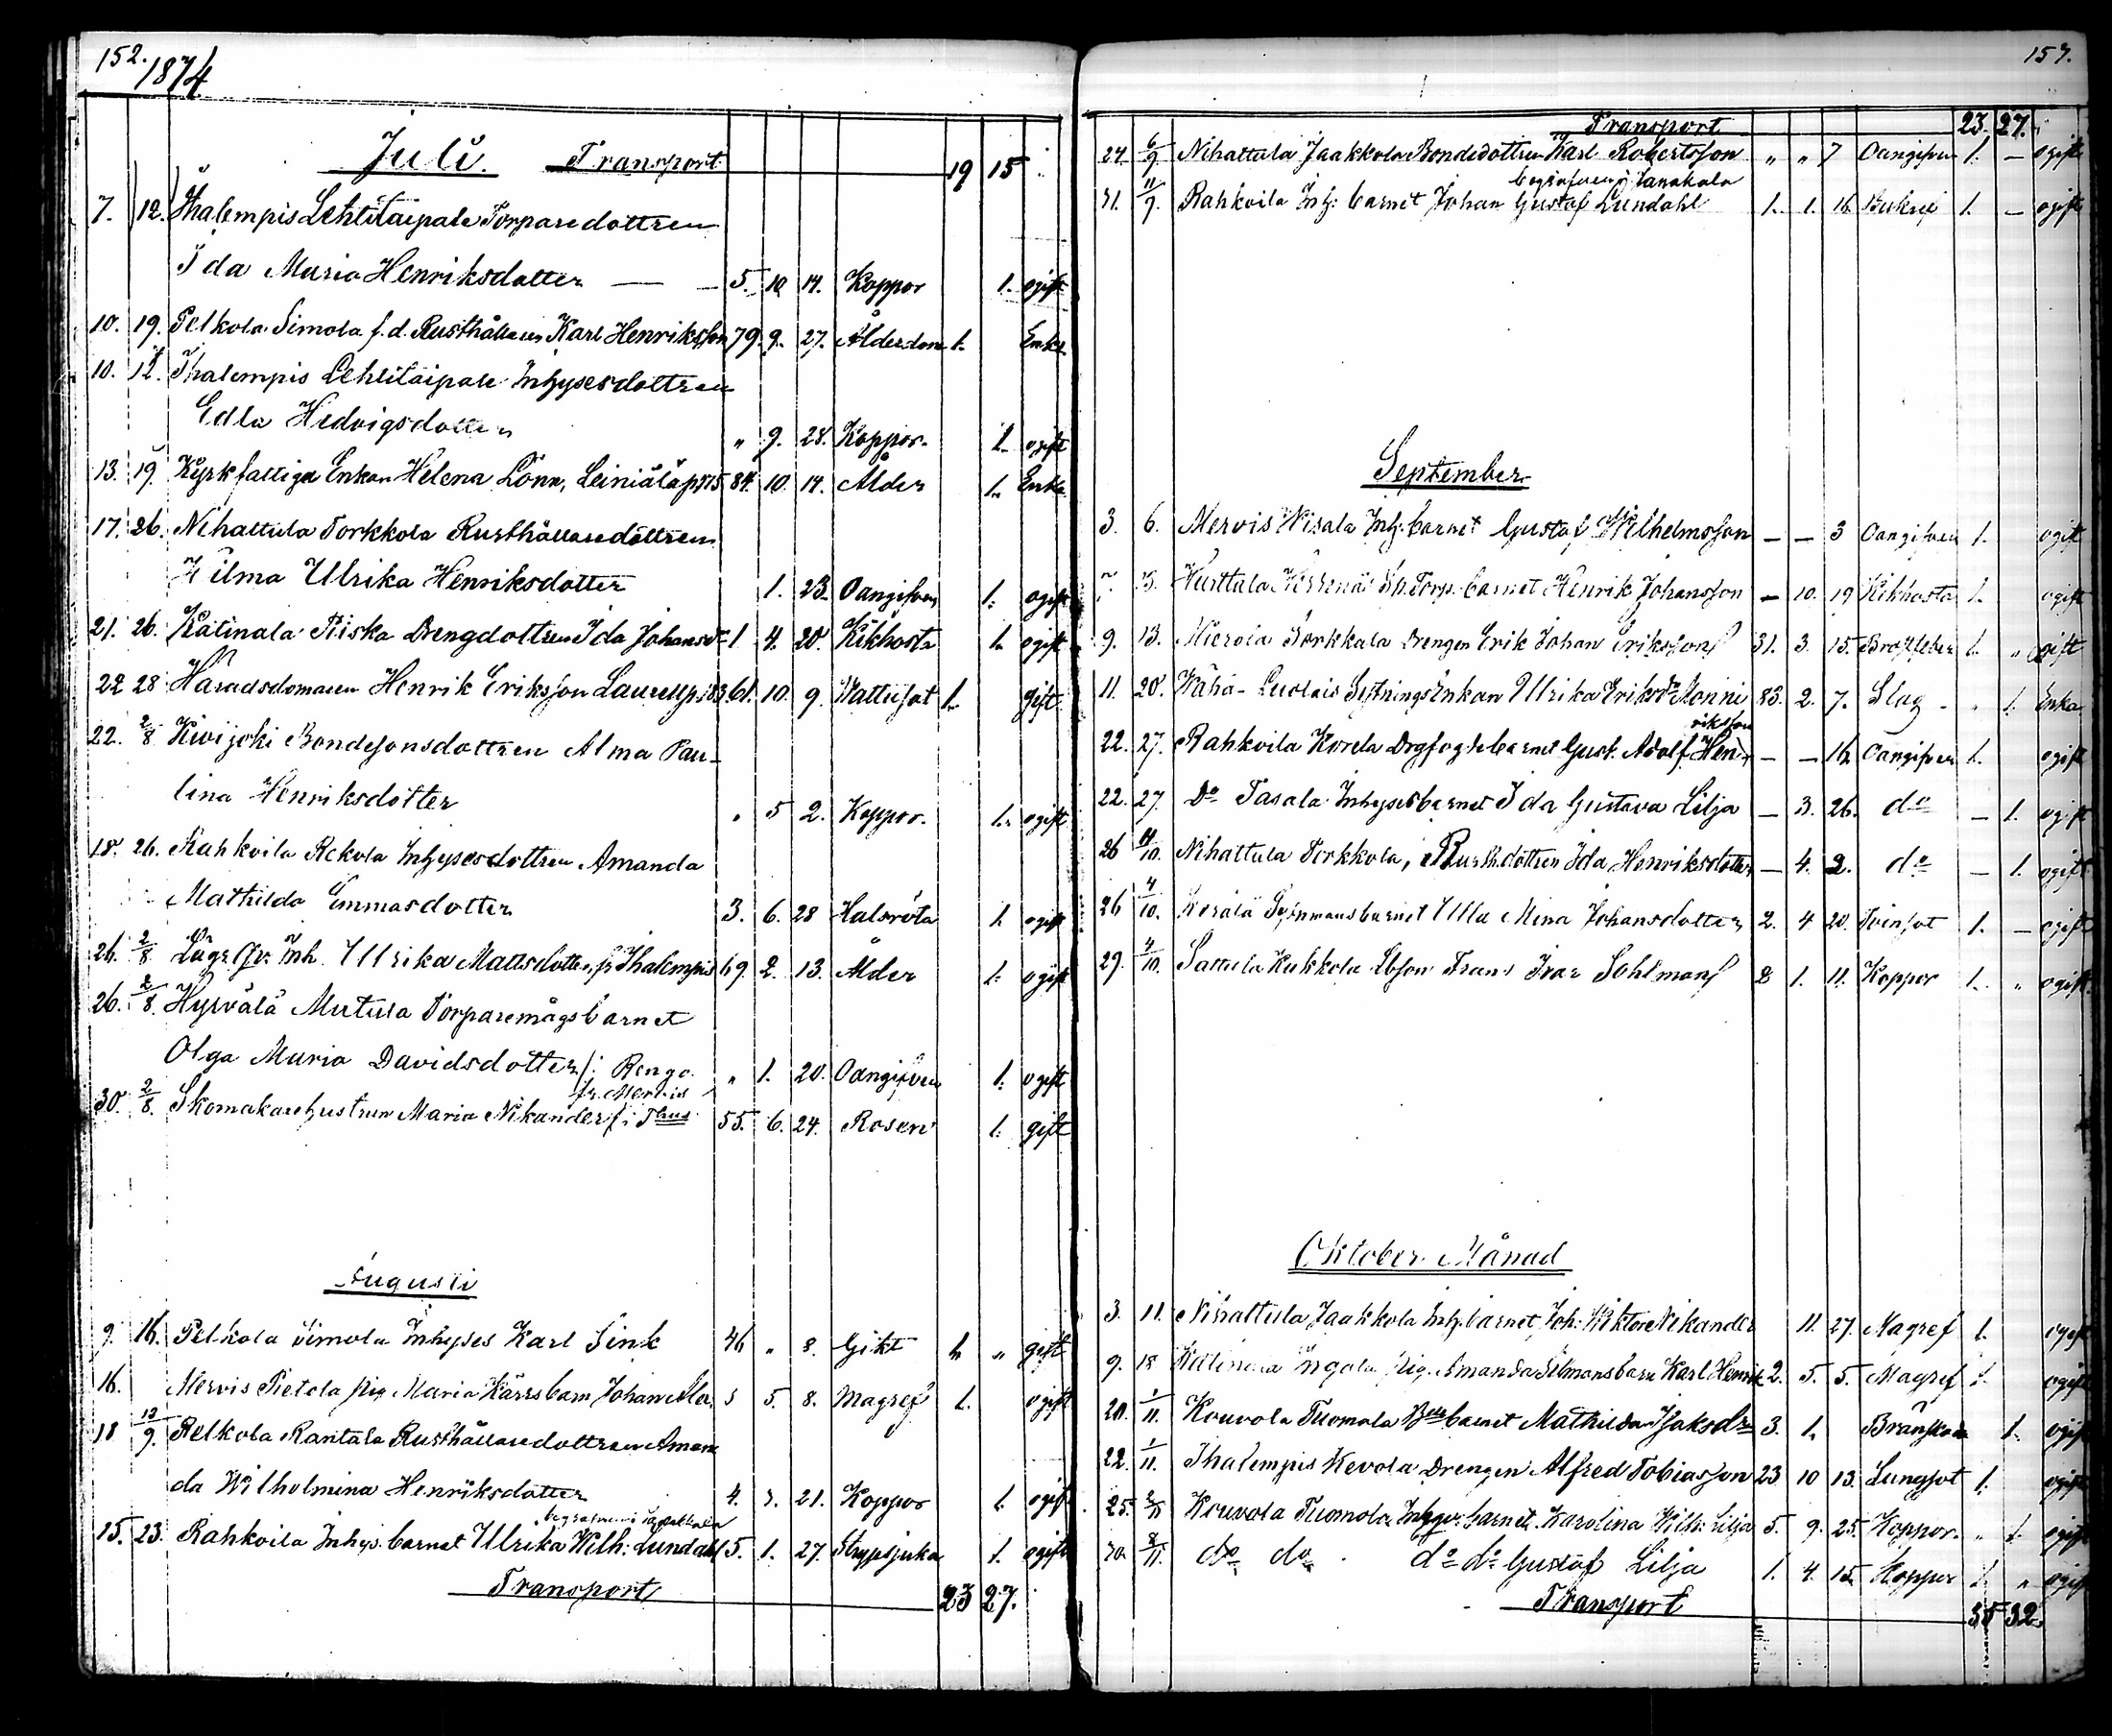 152. 1874
Juli. Transport 19 15
7. 12. Ihalempis Lehtitaipale Torparedottren
Ida Maria Henriksdotter — 5. 10 14. Koppor 1. ogift
10. 19. Pelkola Simola f.d. Rusthållaren Karl Henriksson 79. 9. 27. Ålderdom 1. Enkl.
10. 12. Ihalempis Lehtitaipale Inhysesdottren
Edla Hedvigsdotter " 9. 28. Koppor. 1. ogift
13. 19. Kyrkfattiga Enkan Helena Lönn, Leiniälä 84. 10. 14. Ålder 1. Enka
17. 26. Nihattula Torkkola Rusthållaredottren
Hilma Ulrika Henriksdotter 1. 23. Oangifven 1. ogift
21. 26. Katinala Piiska Drengdottren Ida Johansdr 1 4. 20. Kikhosta 1. ogift
22 28 Häradsdomaren Henrik Eriksson 61. 10. 9. Vattusot 1. gift
22. 2/8 Kivijoki Bondesonsdottren Alma Pau-
lina Henriksdotter " 5 2. Koppor. 1. ogift
18. 26. Rahkoila Rekola Inhysesdottren Amanda
Mathilda Emmasdotter 3. 6. 28 Halsröta 1. ogift
26. 2/8 Inh. Ullrika Mattsdotter, fr Ihalempis 69. 2. 13. Ålder 1. ogift
26. 2/8. Hyrvälä Mutula Torparemågsbarnet
Olga Maria Davidsdotter /: Rengo. " 1. 20. Oangifven 1. ogift
fr. Mervis
30. 2/8. Skomakarehustrun Maria Nikander 55. 6. 24. Rosen 1. gift
Augusti
9. 16. Pelkola Simola Inhyses Karl Sink 46 " 8. Gikt 1. " gift
16. Mervis Pietola pig. Maria Kärrs barn Johan 5. 8. Magref 1. ogift
18 13/9. Pelkola Rantala Rusthållaredottren Aman
da Wilhelmina Henriksdotter 4. 21. Koppor 1. ogift
begrafven i
15. 23. Rahkoila Inhys. barnet Ullrika Wilh: Lundahl 5. 1. 27. Strypsjuka 1. ogift
Transport 23 27.
157.
Transport 23. 27.
24 6/9 Nihattula Jaakkola Bondedottren Karl Robertsson " " 7 Oangifven 1. — ogift
begrafven i Janakala
31. 11/9. Rahkoila Inh: barnet Johan Gustaf Lundahl 1. 1. 16. Bukref 1. — ogift
September
3. 6. Mervis Wisala Inh: barnet Gustaf Wilhelmsson — — 3 Oangifven 1. ogift
Torp. barnet Henrik Johansson — 10. 19 Kikhosta 1. ogift
9. 13. Mierola Torkkala Drengen Erik Johan Eriksson 31. 3. 15. Bröstfeber 1. " ogift
11. 20. Wähä-Luolais Sytningsenkan Ulrika Eriksdr 83. 2. 7. Slag - " 1. Enka
riksson
22. 27. Rahkoila Korela Drgfogdebarnet Gust. Adolf Hen- — — 16. Oangifven 1. ogift
22. 27. Do Tasala Inhysesbarnet Ida Gustava Lilja — 3. 26. do — 1. ogift
26 4/10. Nihattula Torkkola, Rusth.dottren Ida Henriksdotter — 4. 2. do — 1. ogift.
26 4/10. barnet Ulla Mina Johansdotter 2. 4 20. Tvinsot 1. — ogift
29. 4/10. Sattula Kukkola Frans Ivar Sohlman 2 1. 11. Koppor 1. " ogift.
Oktober Månad
3. 11. Nihattula Jaakkola Inh. barnet Joh: Wiktor Nikander 11. 27. Magref 1. ogift
9. 18 Katinala Ingala Pig. Amanda barn Karl Henrik 2. 5. 5. Magref 1. ogift
20. 1/11. Kouvola Tuomola barnet Mathilda Isaksdr 3. 1. 1. ogift
22. 1/11. Ihalempis Kevola Drengen Alfred Tobiasson 23 10 13. Lungsot 1. ogift
25. Kouvola Tuomola Inhyses barnet Karolina Wilh: Lilja 5. 9. 25. Koppor. " 1. ogift
30. 8/11. do do do do Gustaf Lilja 1. 4. 15. Koppor 1. " ogift
Transport 35 32.